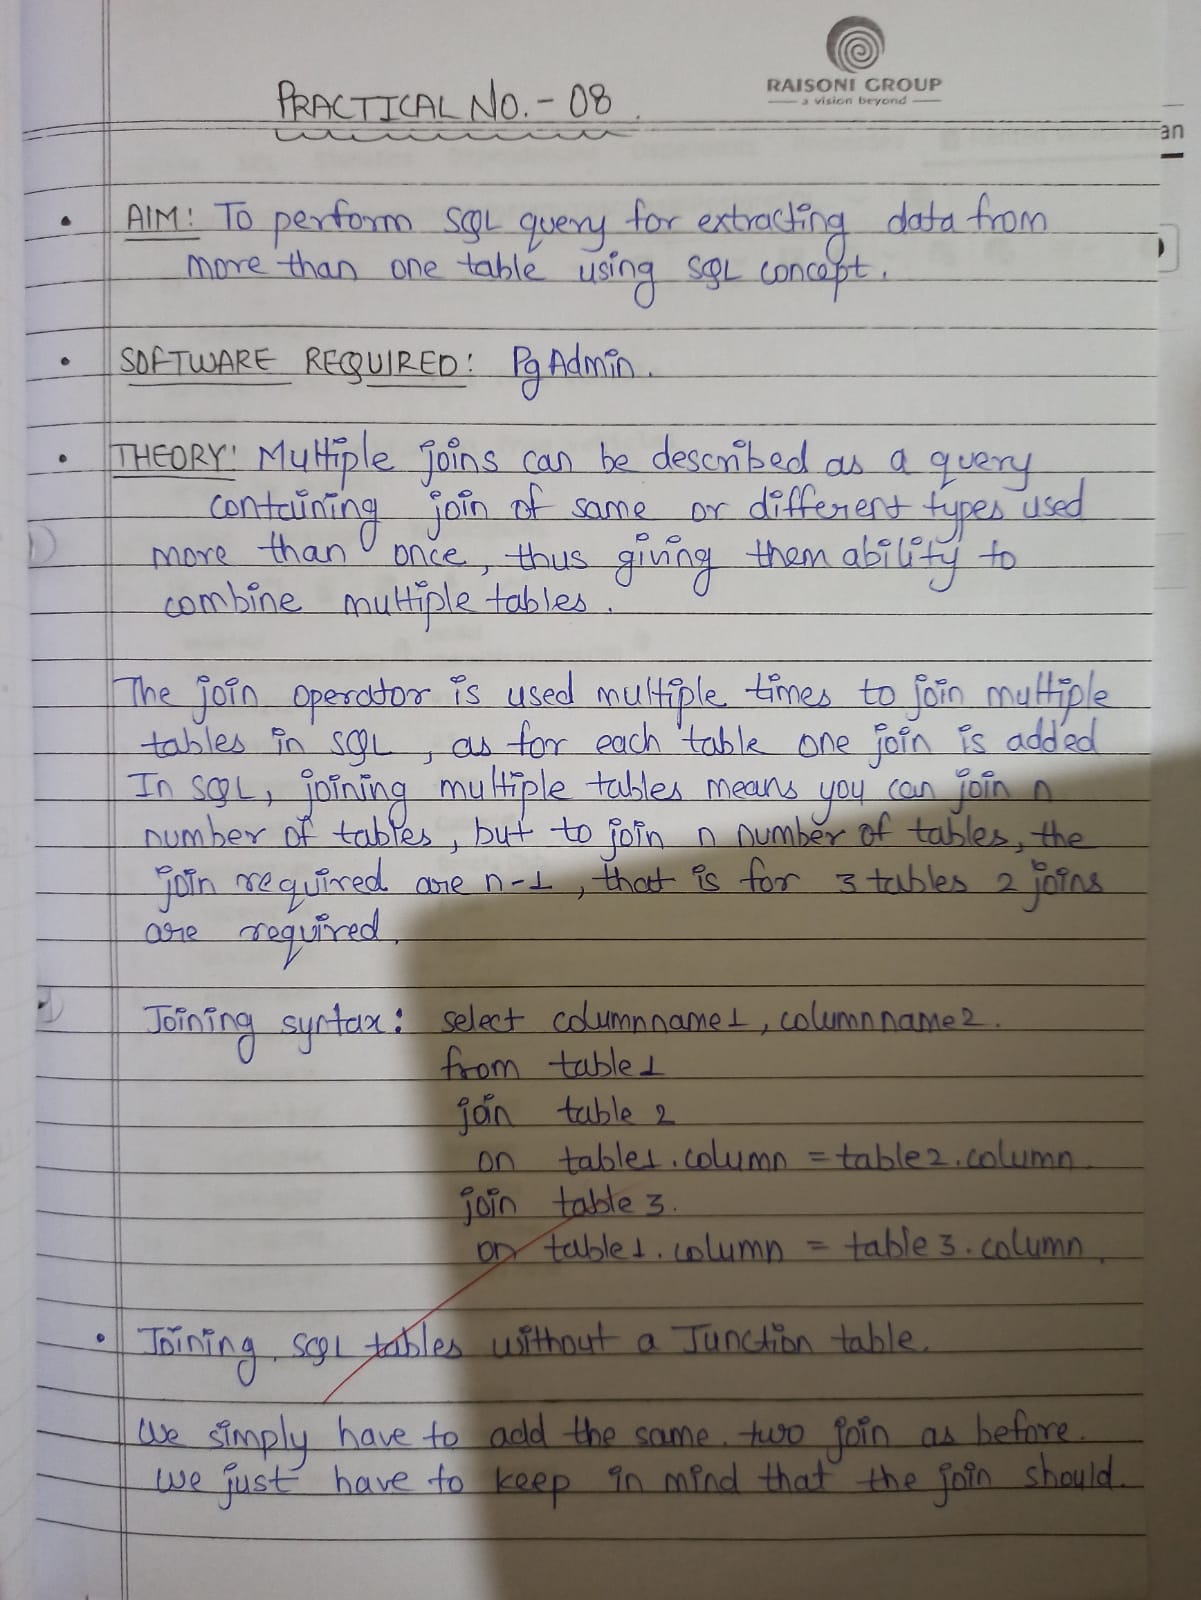 RAISONI GROUP
a vision beyond
PRACTICAL NO.- 08
an
AIM: To perform SQL query for extracting data from
more than one table using SQL concept.
SOFTWARE REQUIRED: PgAdmin.
THEORY: Multiple joins can be described as a query
containing join of same or different types used
more than once, thus giving them ability to
combine multiple tables.
The join operator is used multiple times to join multiple
tables in SQL, as for each table one join is added
In SQL, joining multiple tables means you can join n
number of tables, but to join n number of tables, the
join required are n-1, that is for 3 tables 2 joins
are required.
Joining syntax: select columnname1, columnname2.
from table1
join table 2
on table1.column = table2.column
join table 3.
on table1.column = table 3.column.
Joining SQL tables without a Junction table.
We simply have to add the same two join as before.
We just have to keep in mind that the join should